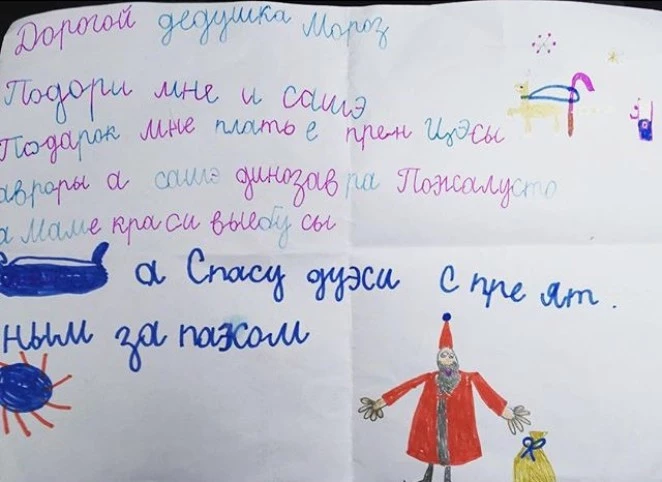 Дорогой дедушка Мороз
Подори мне и сашэ
Подарок мне плать е прен цэсы
авроры а сашэ динозав ра Пожалусто
а маме краси выебу сы
а Спасу дуэси с пре ят.
ным за пахом